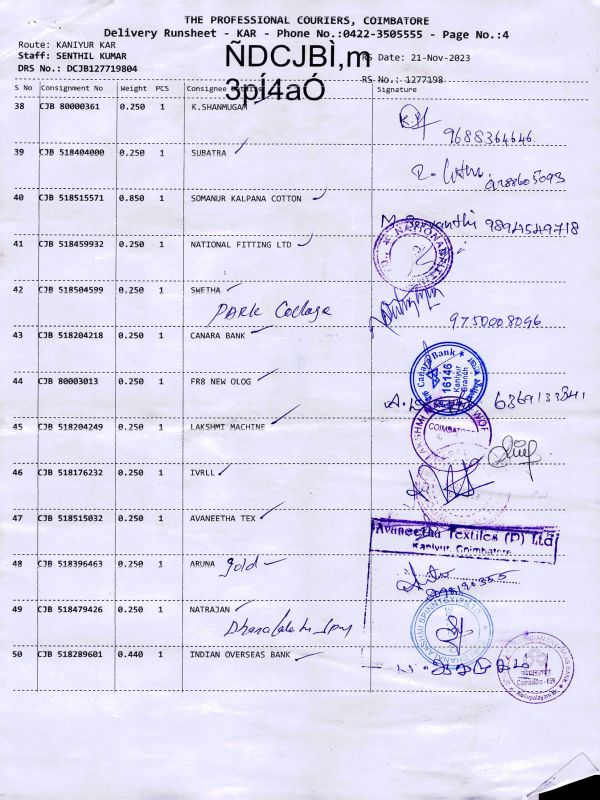 THE PROFESSIONAL COURIERS, COIMBATORE
Delivery Runsheet - KAR - Phone No.:0422-3505555 - Page No.:4
Route: KANIYUR KAR
Staff: SENTHIL KUMAR
RS Date: 21-Nov-2023
DRS No.: DCJB127719804
RS No.: 1277198
ÑDCJBÌ,m
3pí4aÓ
S No Consignment No Weight PCS Consignee Details Signature
38 CJB 80000361 0.250 1 K.SHANMUGAM
9688364646
39 CJB 518404000 0.250 1 SUBATRA
40 CJB 518515571 0.850 1 SOMANUR KALPANA COTTON
9894549718
41 CJB 518459932 0.250 1 NATIONAL FITTING LTD
42 CJB 518504599 0.250 1 SWETHA
PARK College
9750008096
43 CJB 518204218 0.250 1 CANARA BANK
Canara Bank
16146
Kaniyur
Branch
44 CJB 80003013 0.250 1 FR8 NEW OLOG
6369133841
45 CJB 518204249 0.250 1 LAKSHMI MACHINE
COIMBATORE
46 CJB 518176232 0.250 1 IVRLL
47 CJB 518515032 0.250 1 AVANEETHA TEX
Avaneetha Textiles (P) Ltd
Kaniyur, Coimbatore
48 CJB 518396463 0.250 1 ARUNA
gold
49 CJB 518479426 0.250 1 NATRAJAN
50 CJB 518289601 0.440 1 INDIAN OVERSEAS BANK